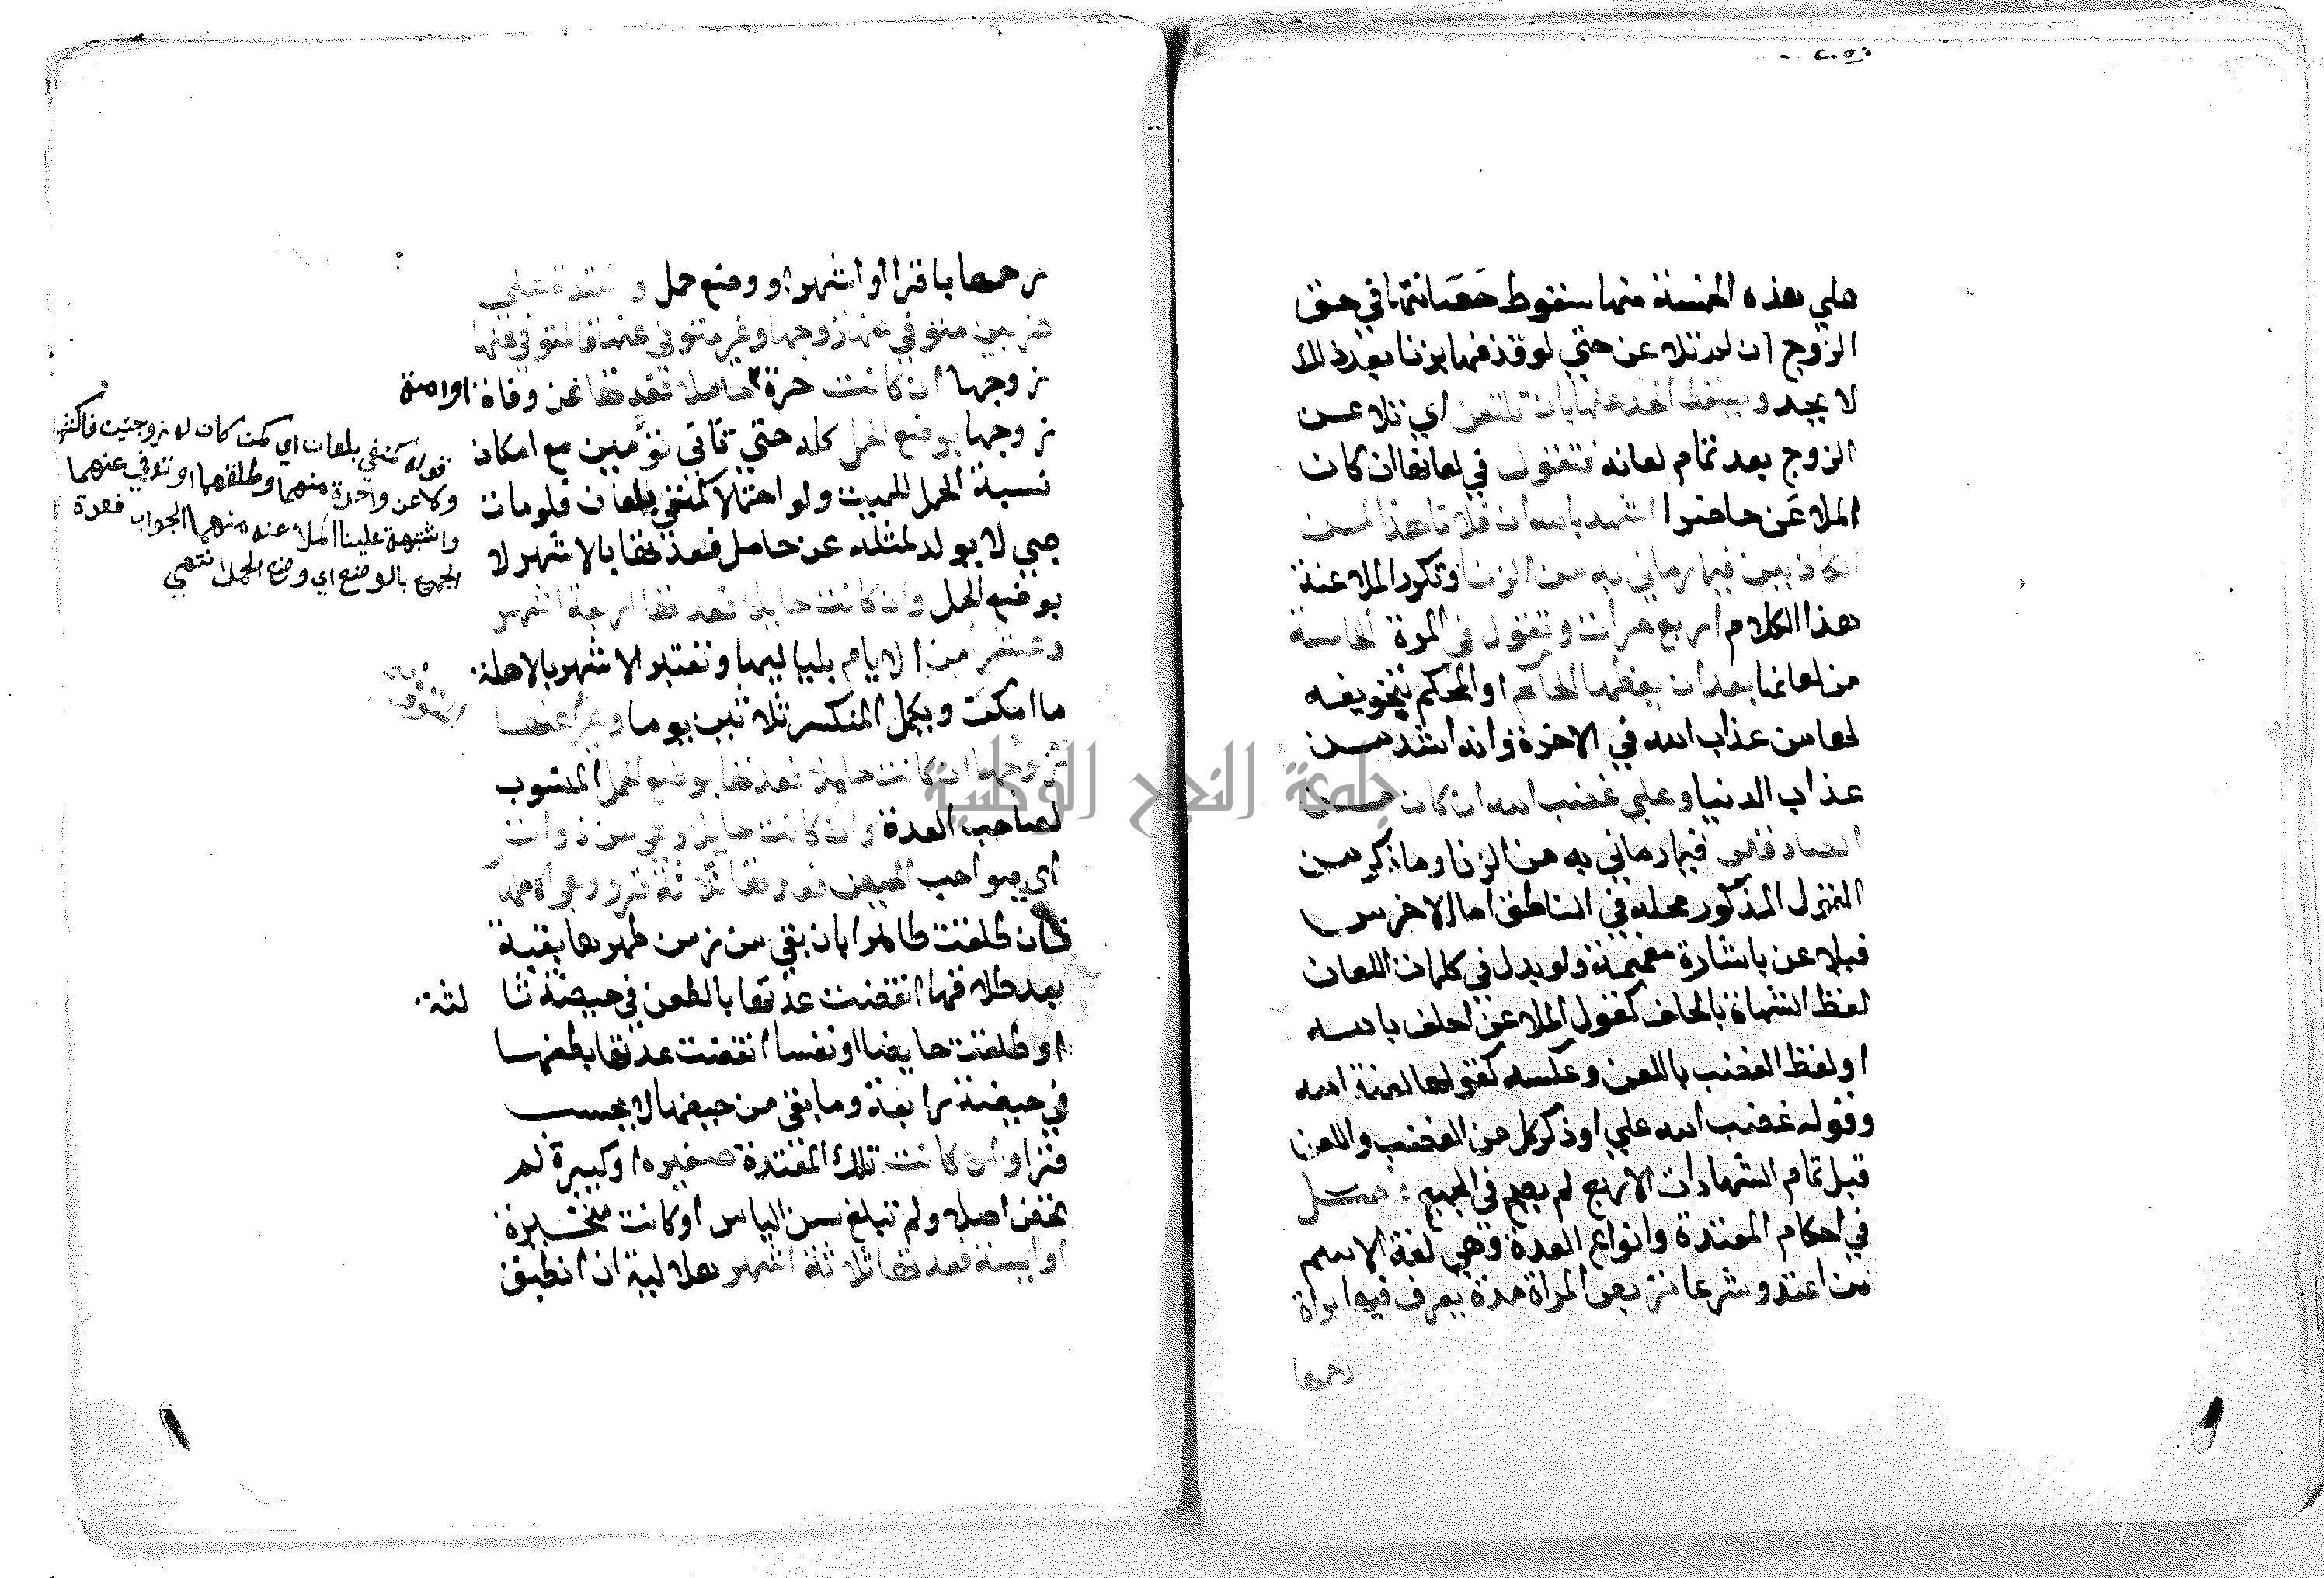 علي هذه الخمسة منها سقوط حَصَانتها في حق
الزوج ان لم تلاعن حتي لو قذفها بزنا بعد ذلك
لا يحد ويسقط الحد عنها بان تلتعن اي تلاعن
الزوج بعد تمام لعانه فتقول في لعانها ان كان
الملاعَن حاضرا اشهد بالله ان فلانا هذا لمن
الكاذبين فيما رماني به من الزنا وتكرر الملاعنة
هذا الكلام اربع مرات وتقول في المرة الخامسة
من لعانها بعد ان يعظها الحاكم او المحكم بتخويفه
لها من عذاب الله في الاخرة وانه اشد من
عذاب الدنيا وعلي غضب الله ان كان من
الصادقين فيما رماني به من الزنا وما ذكر من
القول المذكور محله في الناطق اما الاخرس
فيلاعن باشارة مفهمة ولو بدل في كلمات اللعان
لفظ الشهاة بالحلف كقول الملاعن احلف بالله
او لفظ الغضب باللعن وعكسه كقولها لعنة الله
وقوله غضب الله علي او ذكر كل من الغضب واللعن
قبل تمام الشهادات الاربع لم يصح في الجميع فصل
في احكام المعتدة وانواع العدة وهي لغة الاسم
من اعتد وشرعا تربص المراة مدة يعرف فيها براة
رحمها
رحمها باقرا او اشهر او وضع حمل و المعتدة علي
ضربين متوفي عنها زوجها وغير متوفي عنها فالمتوفي عنها
زوجها ان كانت حرة حاملا فعدتها عن وفاة
او امة
زوجها بوضع الحمل كله حتي ثاني توَّمين مع امكان
نسبة الحمل للميت ولو احتمالا كمنفي بلعان فلو مات
صبي لا يولد لمثله عن حامل فعدتها بالاشهر لا
بوضع الحمل وان كانت حايلا فعدتها اربعة اشهر
وعشر من الايام بلياليها وتعتبر الاشهر بالاهلة
ما امكن ويكمل المنكسر ثلاثين يوما وغير
المتوفي عنها
زوجها ان كانت حاملا فعدتها بوضع الحمل المنسوب
لصاحب العدة وان كانت حايلا وهي من ذوات
اي صواحب الحيض فعدتها ثلاثة قرو وهي الاطهار
فان طلقت طاهرا بان بقي من زمن طهرها بقية
بعد طلاقها انقضت عدتها بالطعن في حيضة ثا
لثة
او طلقت حايضا او نفسا انقضت عدتها بطعنها
في حيضة رابعة وما بقي من حيضها لا يحسب
قرا وان كانت تلك المعتدة صغيره او كبيرة لم
تحض اصلا ولم تبلغ سن الياس او كانت متحيرة
او ايسة فعدتها ثلاثة اشهر هلالية ان انطبق
قوله كمنفي بلعان اي كمن كان له زوجتين
ولاعن واحدة منهما وطلقهما او توفي عنهما
واشتبهة علينا الملاعنه منهما الجواب فعدة
الجميع بالوضع اي وضع الحمل انتهي
جامعة النجاح الوطنية